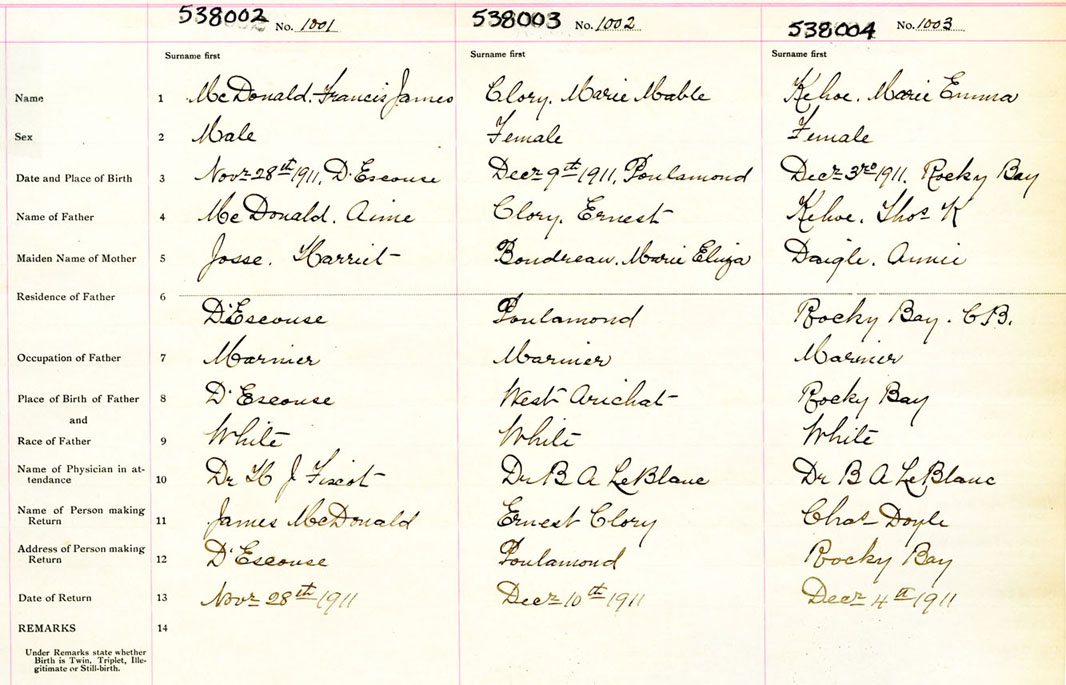 538002 No. 1001 538003 No. 1002 538004 No. 1003
Surname first Surname first Surname first
Name 1 McDonald, Francis James Clory, Marie Mable Kehoe, Marie Emma
Sex 2 Male Female Female
Date and Place of Birth 3 Novr 28th 1911, D'Escouse Decr 9th 1911, Poulamond Decr 3rd 1911, Rocky Bay
Name of Father 4 McDonald, Aime Clory, Ernest Kehoe, Thos K
Maiden Name of Mother 5 Josse, Harriet Boudreau, Marie Eliza Daigle, Annie
Residence of Father 6
D'Escouse Poulamond Rocky Bay. C.B.
Occupation of Father 7 Marnier Marinier Marinier
Place of Birth of Father 8 D'Escouse West Arichat Rocky Bay
and
Race of Father 9 White White White
Name of Physician in at-
tendance 10 Dr H J Fixott Dr B A LeBlanc Dr B A LeBlanc
Name of Person making
Return 11 James McDonald Ernest Clory Chas Doyle
Address of Person making
Return 12 D'Escouse Poulamond Rocky Bay
Date of Return 13 Novr 28th 1911 Decr 10th 1911 Decr 4th 1911
REMARKS 14
Under Remarks state whether
Birth is Twin, Triplet, Ille-
gitimate or Still-birth.